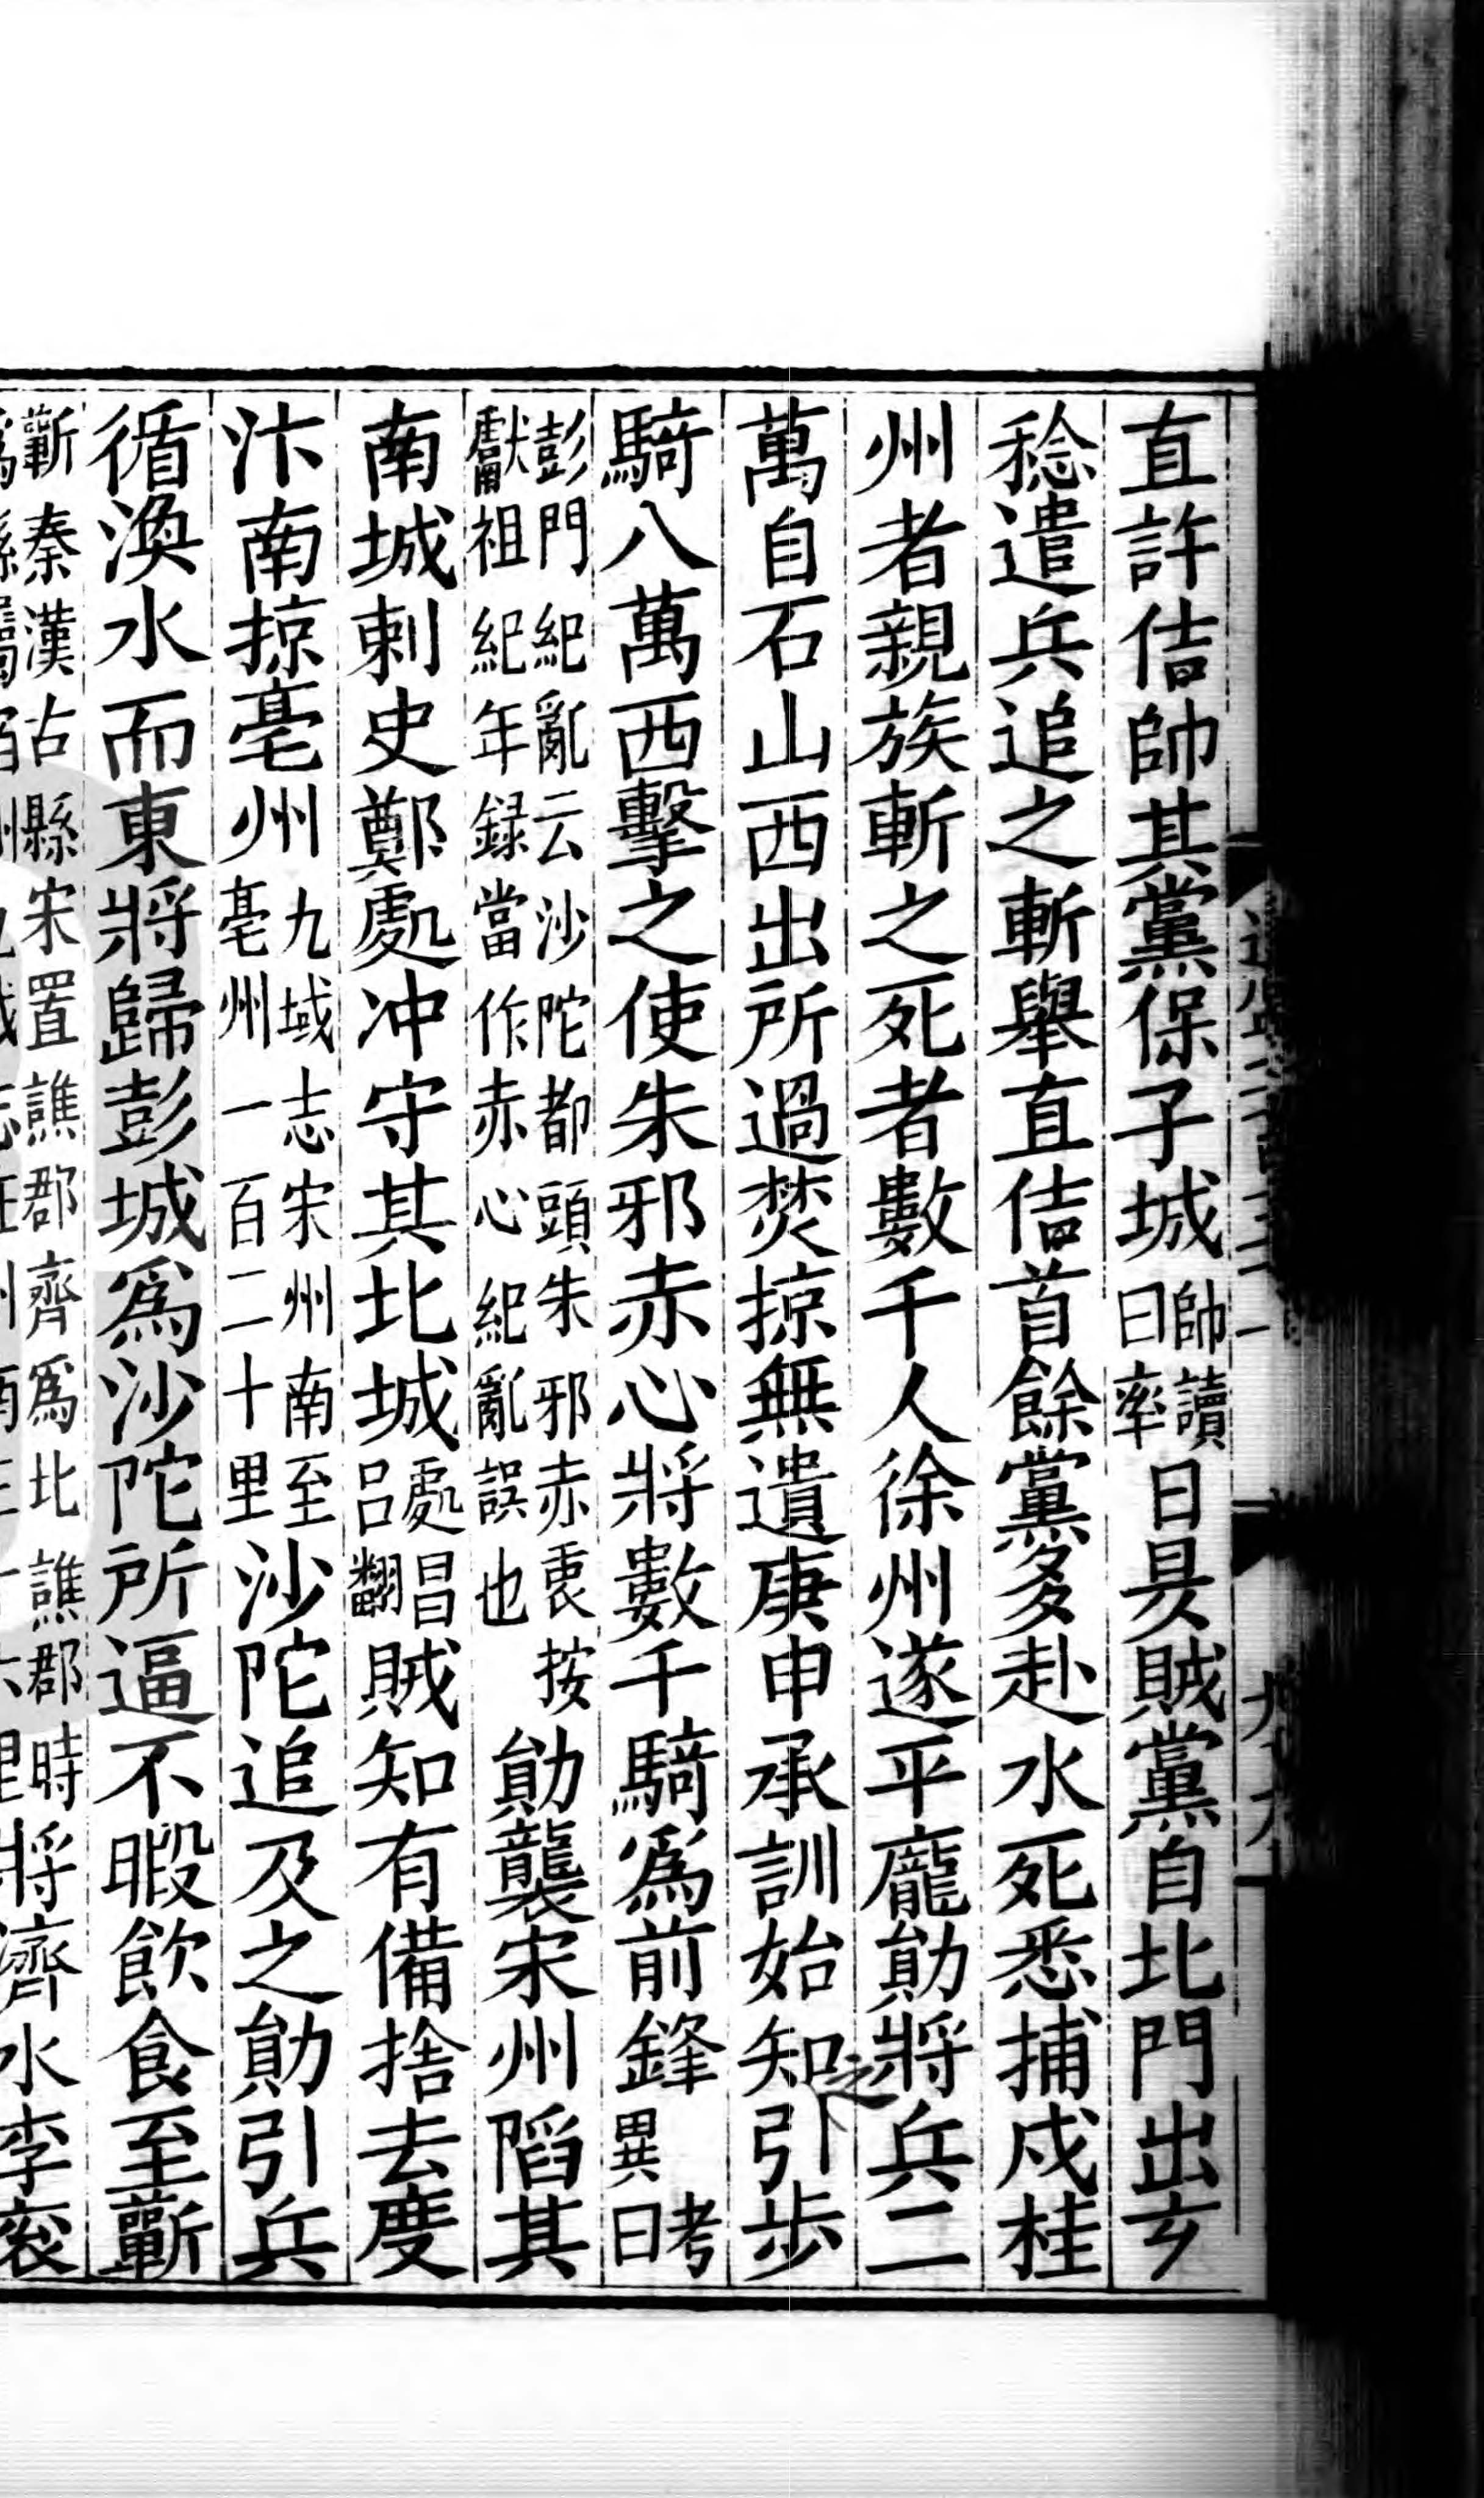 直許佶帥其黨保子城帥讀曰率日昃賊黨自北門出玄
稔遣兵追之斬舉直佶首餘黨多赴水死悉捕戍桂
州者親族斬之死者數千人徐州遂平龐勛將兵二
萬自石山西出所過焚掠無遺庚申承訓始知之引步
騎八萬西擊之使朱邪赤心將數千騎爲前鋒考異曰
彭門紀亂云沙陀都頭朱邪赤衷按獻祖紀年録當作赤心紀亂誤也勛襲宋州陷其
南城刺史鄭處冲守其北城處昌呂翻賊知有備捨去度
汴南掠亳州九域志宋州南至亳州一百二十里沙陀追及之勛引兵
循渙水而東將歸彭城爲沙陀所逼不暇飲食至蘄
蘄秦漢古縣宋置譙郡齊爲北譙郡時將濟水李衮